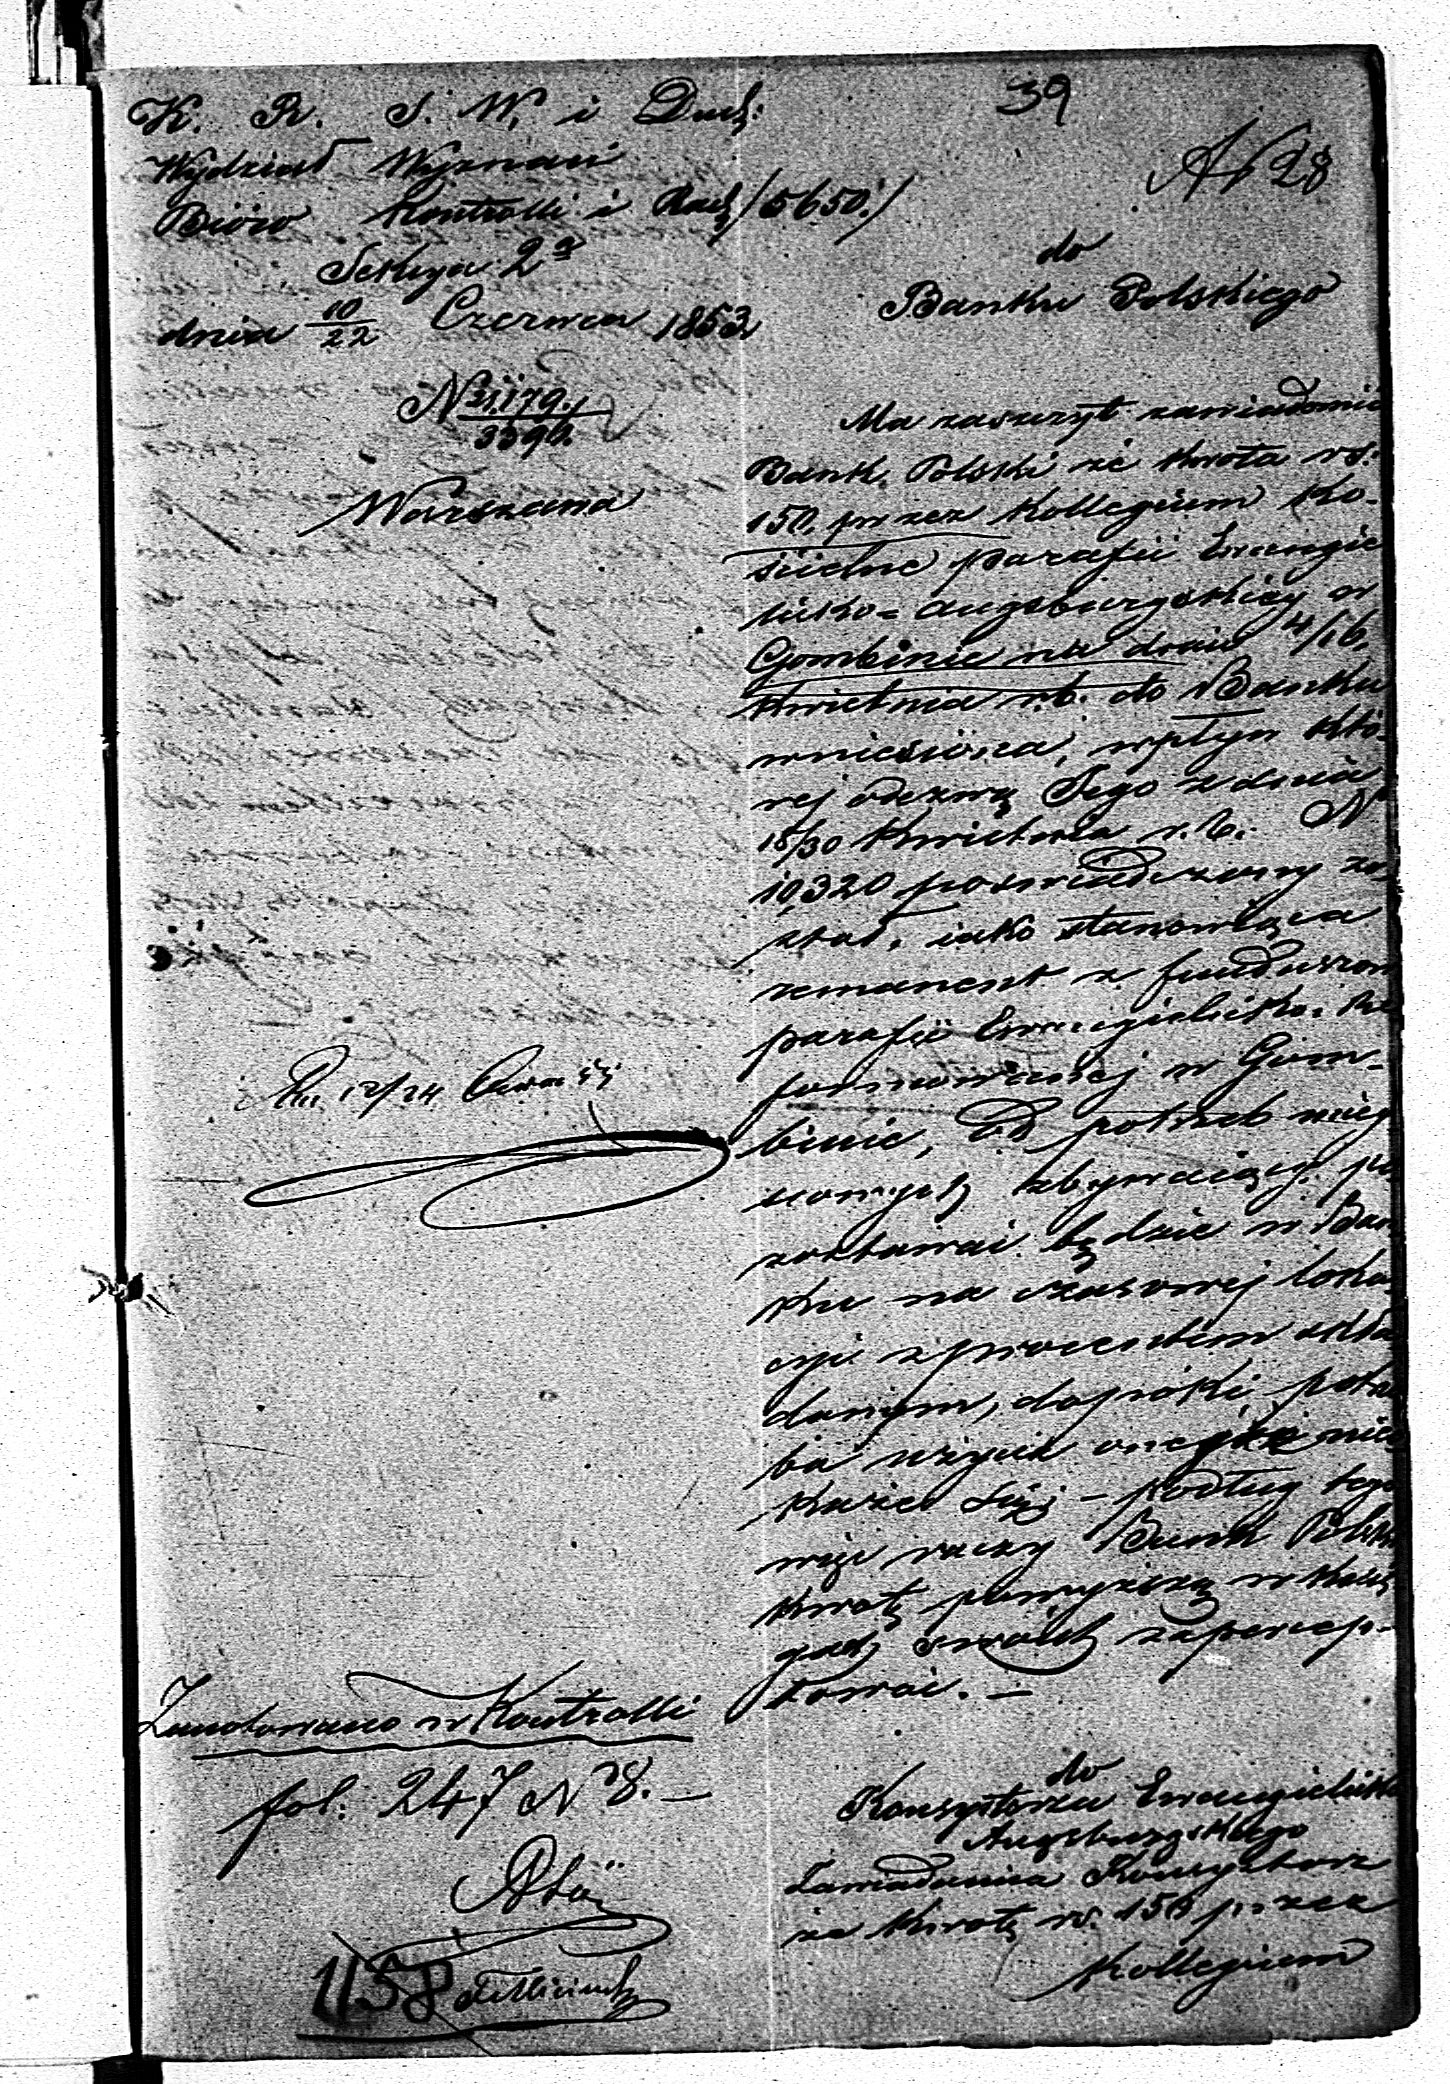 39
K. R. S. W. i Duch:
Wydział Wyznań
Bióro Kontrolli i Rach /5650./
Sekcya 2a
dnia 10/22 Czerwca 1853
N 31,179./3390.
Warszawa
N 28
do
Banku Polskiego
Ma zaszczyt zawiadomić
Bank Polski że kwota rs:
150, przez Kollegium Ko-
ścielne parafii Ewangie
licko-Augsburgskiey w
Gombinie na dniu 4/16
Kwietnia r.b. do Banku
wniesiona, wpływ któ-
rej odezwą Jego z dnia
18/30 Kwietnia r.b. N
10,320 poswiadczony zo-
stał, iako stanowiąca
remanent z funduszow
parafii Ewangielicko-Re
formowanej w Gom-
binie, od potrzeb miey
scowych zbywaiący, po
zostawać będzie w Ban
ku na czasowej loka
cyi z procentem skła
danym, dopóki potrze
ba użycia onegoż nieo
każe się; – podług tego
więc raczy Bank Polski
kwotę powyższą w księ
gach swoich zapercep-
tować. –
Dn 12/24 Czerwca
Zanotowano w Kontrolli
fol: 247 N 8. –
1158
do
Konsystorza Ewangielicko
Augsburgskiego
Zawiadamia Konsystorz
że kwotę rs. 150 przez
Kollegium